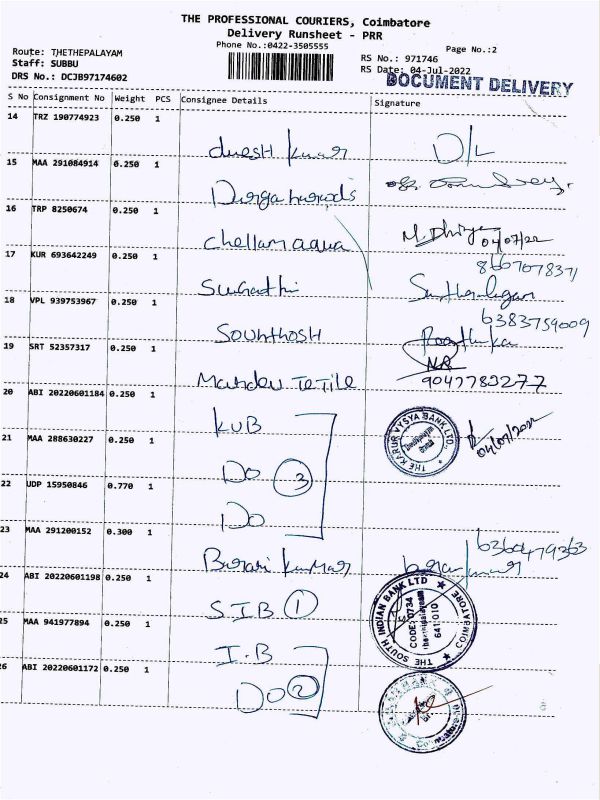 THE PROFESSIONAL COURIERS, Coimbatore
Delivery Runsheet - PRR
Phone No.:0422-3505555
Page No.:2
Route: THETHEPALAYAM
Staff: SUBBU
DRS No.: DCJB97174602
RS No.: 971746
RS Date: 04-Jul-2022
DOCUMENT DELIVERY
S No Consignment No Weight PCS Consignee Details Signature
14 TRZ 190774923 0.250 1
kumar D/L
15 MAA 291084914 0.250 1
Durga
16 TRP 8250674 0.250 1
Chellam aqua M. Dhivya 04/07/22
17 KUR 693642249 0.250 1
8667078371
Sugathi
18 VPL 939753967 0.250 1
6383759009
Sounthosh
19 SRT 52357317 0.250 1
NR
Mahadev Tetile 9047783277
20 ABI 20220601184 0.250 1
KVB
THE KARUR VYSYA BANK LTD.
04/07/2022
21 MAA 288630227 0.250 1
Do 3
22 UDP 15950846 0.770 1
Do
23 MAA 291200152 0.300 1
6360479363
kumar
24 ABI 20220601198 0.250 1
S.I.B 1
THE SOUTH INDIAN BANK LTD
COIMBATORE
CODE: 0734
641 010
25 MAA 941977894 0.250 1
I.B
26 ABI 20220601172 0.250 1
Do 2